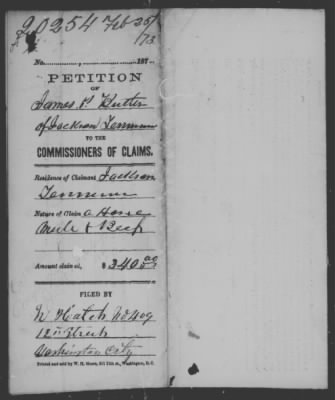 20254 Feb 25/73
No. , 187
PETITION
OF
James P. Butler
of Jackson Tennessee
TO THE
COMMISSIONERS OF CLAIMS.
Residence of Claimant Jackson
Tennessee
Nature of Claim a Horse
Mule & Beef
Amount claimed, $ 340 00
FILED BY
W Hatch No 409
12th Street
Washington City
Printed and sold by W. H. Moore, 511 11th st., Washington, D. C.